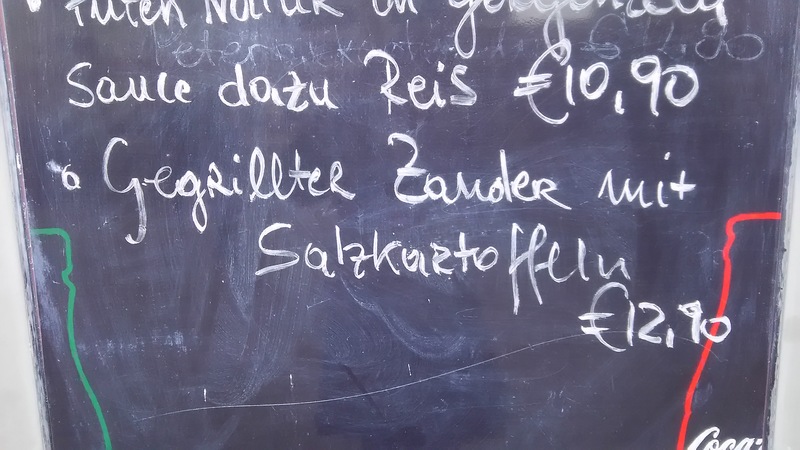 Puten Natur in Gorgonzola
Sauce dazu Reis €10,90
Gegrillter Zander mit
Salzkartoffeln
€12,90
Coca-